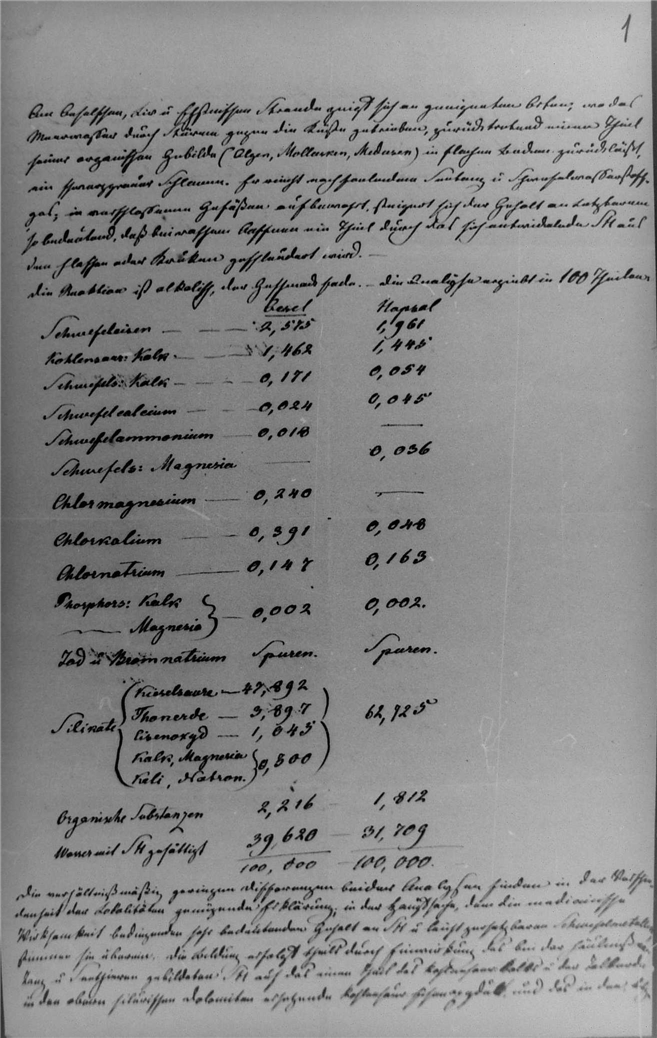 1
Am Oeselschen, Liv u Ehstnischen Strande zeigt sich an geeigneten Orten, wo das
Meerwasser durch Stürme gegen die Küste getrieben, zurücktretend einen Theil
seiner organischen Gebilde (Algen, Mollusken, Medusen) in flachen Buchten zurückläßt,
ein schwarzgrauer Schlamm. Er riecht nach faulendem Seetang u Schwefelwasserstoff-
gas; in verschlossenen Gefäßen aufbewahrt, steigert sich der Gehalt an Letzterem
so bedeutend, daß bei raschem Oeffnen ein Theil durch das sich entwickelnde SH aus
den Flaschen oder Kruken geschleudert wird. —
Die Reaktion ist alkalisch, der Geschmack fade. — Die Analyse ergiebt in 100 Theilen:
Oesel Hapsal
Schwefeleisen — — — 2,575 1,961
Kohlensaur: Kalk — — 1,462 1,445
Schwefels: Kalk — — 0,171 0,054
Schwefelcalcium — — 0,024 0,045
Schwefelammonium — 0,018 —
Schwefels: Magnesia — 0,036
Chlormagnesium — 0,240 —
Chlorkalium — 0,391 0,048
Chlornatrium — 0,147 0,163
Phosphors: Kalk
— Magnesia } — 0,002 0,002.
Jod u Bromnatrium Spuren. Spuren.
Kieselsaure — 47,892
Silikate Thonerde — 3,897 62,725
Eisenoxyd — 1,045
Kalk, Magnesia
Kali, Natron. } 0,500
Organische Substanzen 2,216 — 1,812
Wasser mit SH gesättigt 39,620 — 31,709
100,000 — 100,000.
Die verhältnißmäßig geringen Differenzen beider Analysen finden in der Verschie-
denheit der Lokalitäten genügende Erklärung; in der Hauptsache, dem die medicinische
Wirksamkeit bedingenden sehr bedeutenden Gehalt an SH u leicht zersetzbaren Schwefelmetallen
stimmen sie überein. Die Bildung erfolgt theils durch Einwirkung des bei der Fäulniß von
Tang u Seethieren gebildeten SH auf das einen Theil des kohlensauren Kalks u der Talkerde
in den obern silurischen Dolomiten ersetzende kohlensaure Eisenoxydul, und das in der